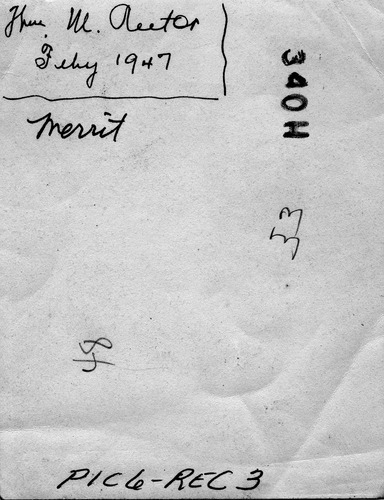 M. Rector
Feby 1947
Merrit
340H
33
48
PIC6-REC3